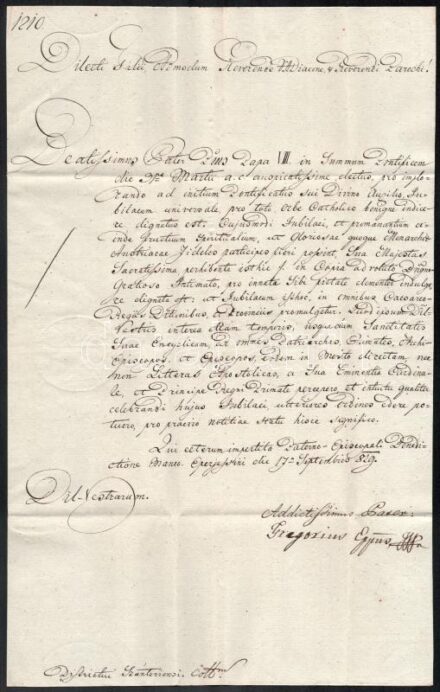 1210
Dilecti Filii, Admodum Reverende V. A. Diacone, & Reverendi Parochi!
Beatissimus Pater Pius Papa VIII. in Summum Pontificem
die Martii a. c. auspicatissime electus, pro implo-
rando ad initium Pontificatus sui Divino Auxilio, Ju-
bilaeum universale pro toto orbe Catholico benigne indice-
re dignatus est. Cujusmodi Jubilaei, et promanantium ex
inde fructuum Spiritualium, ut Gloriosae quoque Monarchiae
Austriacae Fideles participes fieri possint, Sua Majestas
Sacratissima perhibente isthic in Copia advoluto Benigno
Gratioso Intimato, pro innata Sibi pietate clementer indulge-
re dignata est: ut Jubilaeum in omnibus Caesareo
Regiis Ditionibus, et Provinciis promulgetur. Quod ipsum Dil.
Vestris interea etiam temporis, usquedum Sanctitatis
Suae Encyclicam, ad omnes Patriarchas, Primates, Archi-
Episcopos, et Episcopos, eodem in merito directam, nec
non Litteras Apostolicas, a Sua Eminentia Cardina-
le, et Principe Regni Primate percepero, et intuitu qualiter
celebrandi hujus Jubilaei ulteriores ordines edere po-
tuero, pro praevio notitiae statu hisce significo.
Qui ceterum impertita Paterno-Episcopali Benedi-
ctione maneo. Eperjessini die 17a Septembris 829.
Dil. Vestrarum.
Addictissimus Pater
Gregorius Eppus
Districtui